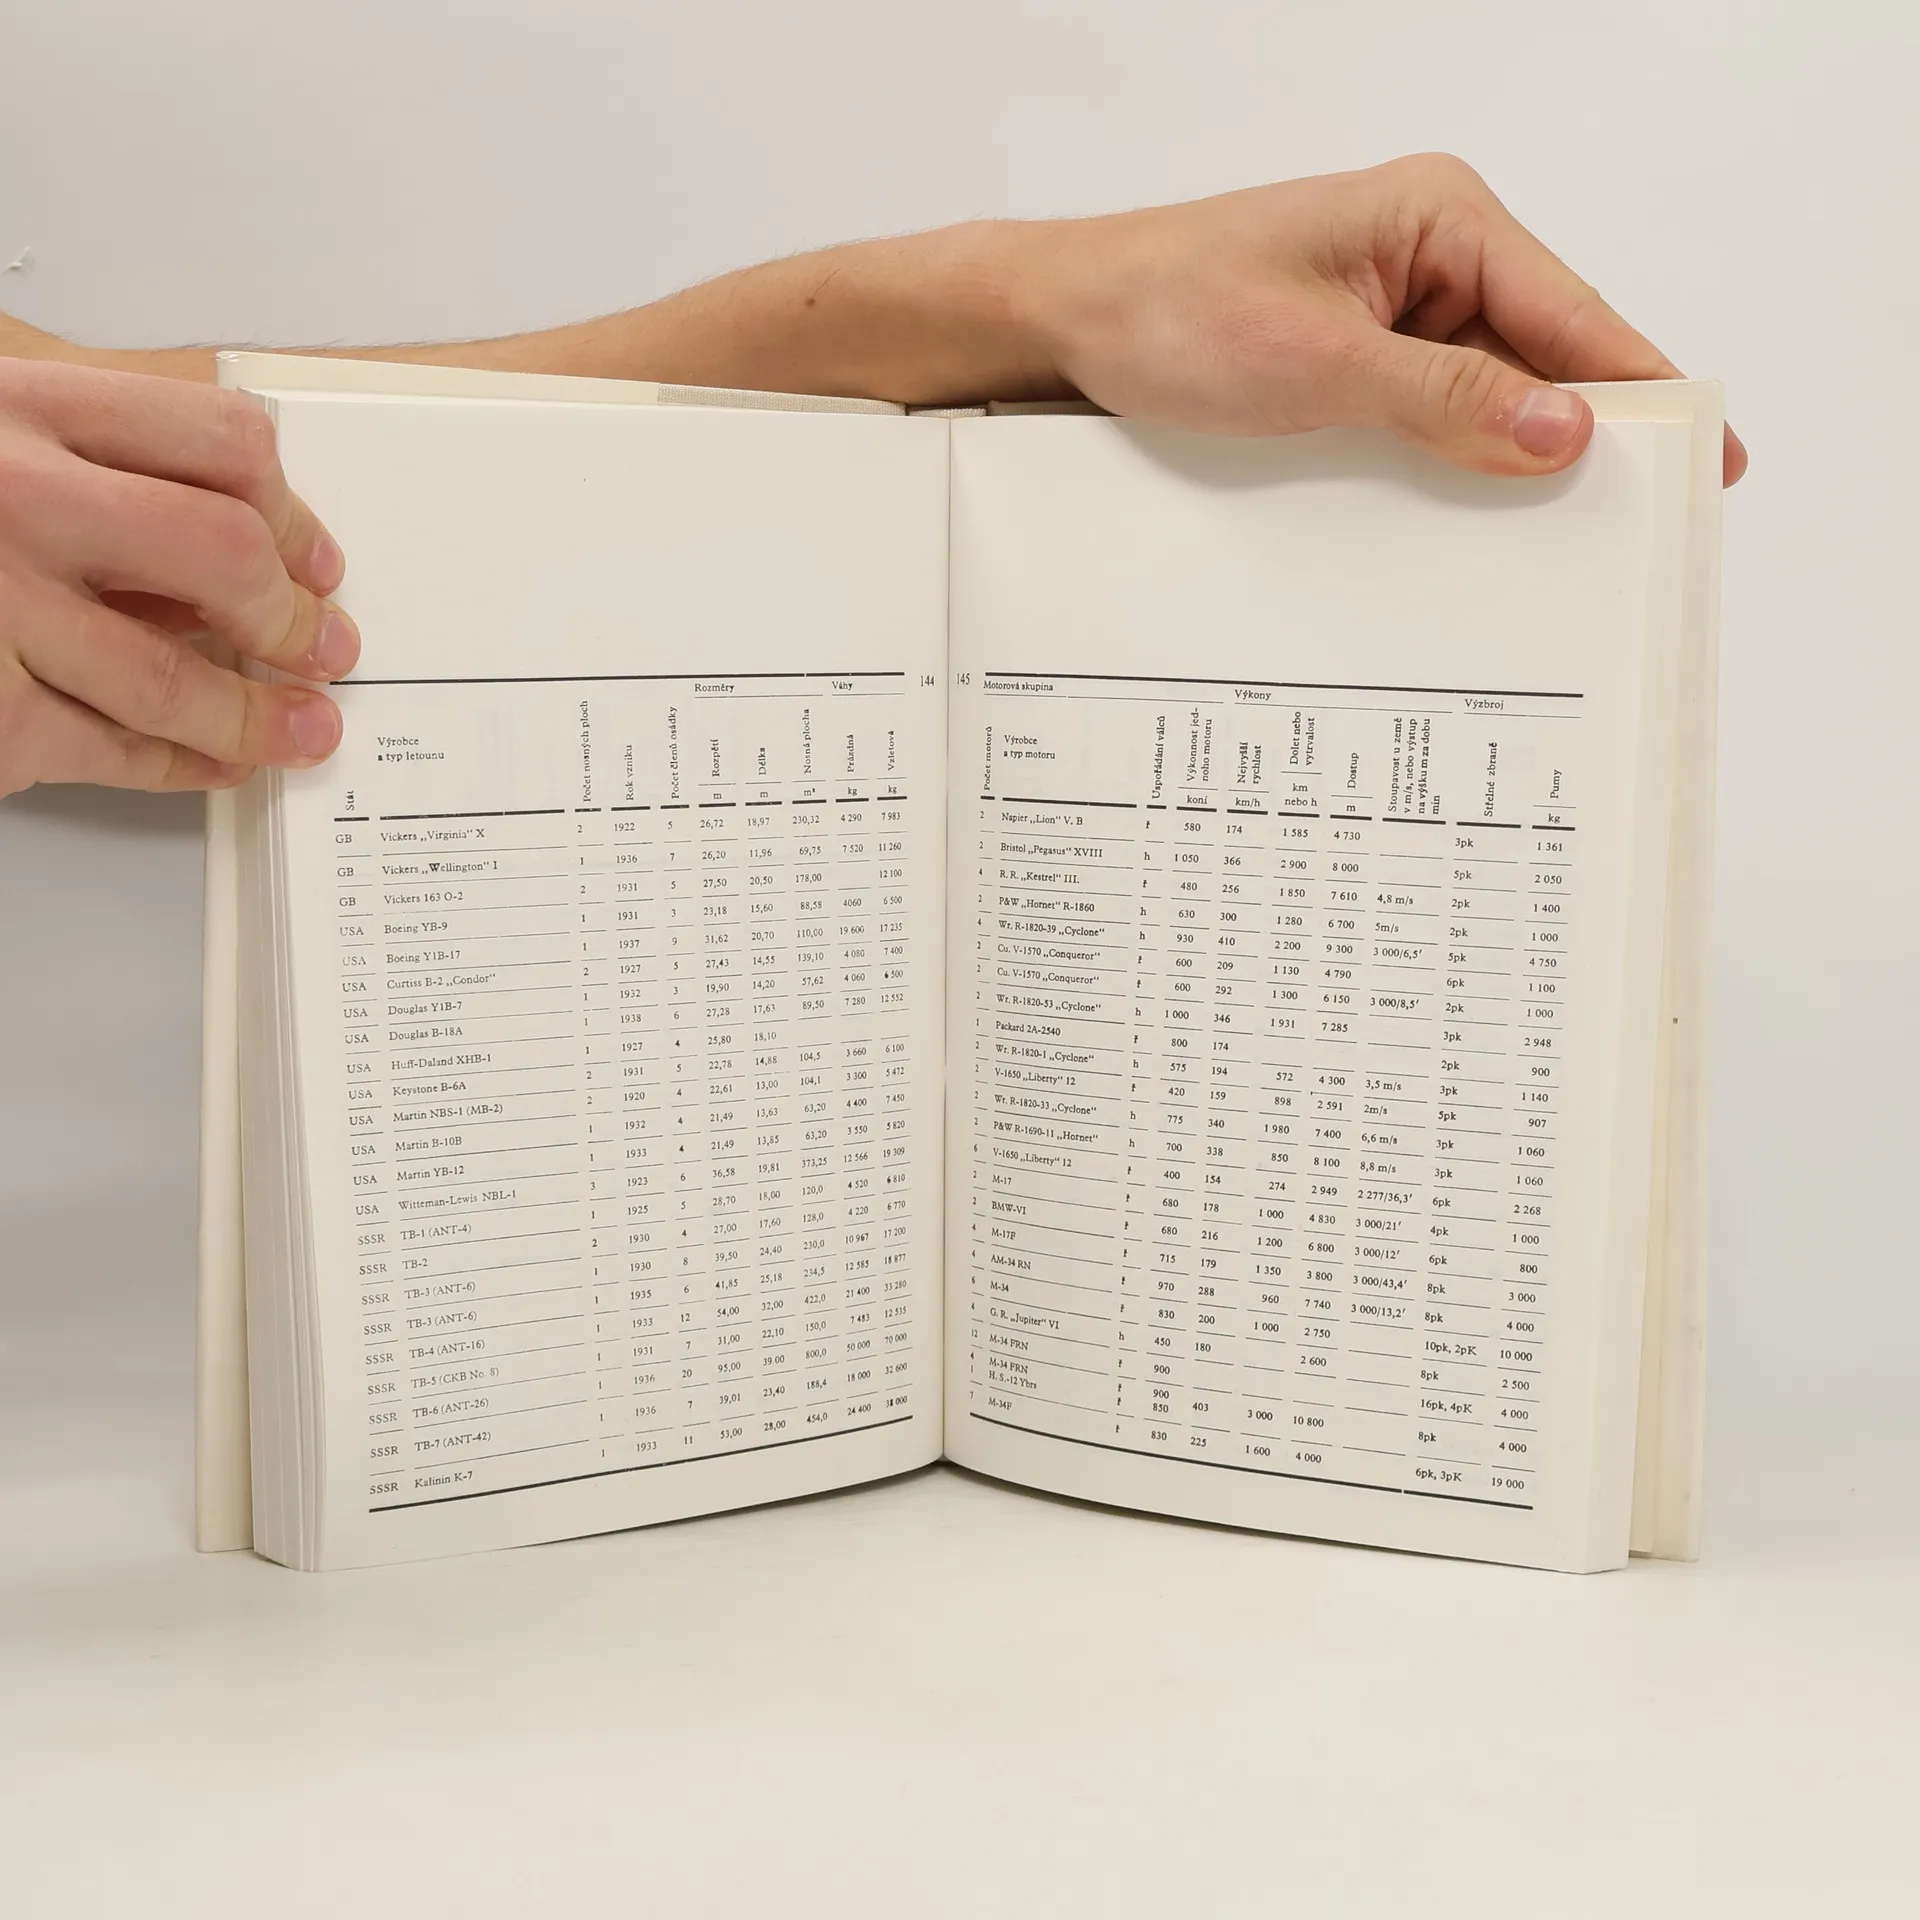 144
Rozměry
Váhy
Stát
Výrobce
a typ letounu
Počet nosných ploch
Rok vzniku
Počet členů osádky
Rozpětí
Délka
Nosná plocha
Prázdná
Vzletová
m m m² kg kg
GB Vickers „Virginia“ X 2 1922 5 26,72 18,97 230,32 4 290 7 983
GB Vickers „Wellington“ I 1 1936 7 26,20 11,96 69,75 7 520 11 260
GB Vickers 163 O-2 2 1931 5 27,50 20,50 178,00 12 100
USA Boeing YB-9 1 1931 3 23,18 15,60 88,58 4060 6 500
USA Boeing Y1B-17 1 1937 9 31,62 20,70 110,00 19 600 17 235
USA Curtiss B-2 „Condor“ 2 1927 5 27,43 14,55 139,10 4 080 7 400
USA Douglas Y1B-7 1 1932 3 19,90 14,20 57,62 4 060 6 500
USA Douglas B-18A 1 1938 6 27,28 17,63 89,50 7 280 12 552
USA Huff-Daland XHB-1 1 1927 4 25,80 18,10
USA Keystone B-6A 2 1931 5 22,78 14,88 104,5 3 660 6 100
USA Martin NBS-1 (MB-2) 2 1920 4 22,61 13,00 104,1 3 300 5 472
USA Martin B-10B 1 1932 4 21,49 13,63 63,20 4 400 7 450
USA Martin YB-12 1 1933 4 21,49 13,85 63,20 3 550 5 820
USA Witteman-Lewis NBL-1 3 1923 6 36,58 19,81 373,25 12 566 19 309
SSSR TB-1 (ANT-4) 1 1925 5 28,70 18,00 120,0 4 520 6 810
SSSR TB-2 2 1930 4 27,00 17,60 128,0 4 220 6 770
SSSR TB-3 (ANT-6) 1 1930 8 39,50 24,40 230,0 10 967 17 200
SSSR TB-3 (ANT-6) 1 1935 6 41,85 25,18 234,5 12 585 18 877
SSSR TB-4 (ANT-16) 1 1933 12 54,00 32,00 422,0 21 400 33 280
SSSR TB-5 (CKB No. 8) 1 1931 7 31,00 22,10 150,0 7 483 12 535
SSSR TB-6 (ANT-26) 1 1936 20 95,00 39.00 800,0 50 000 70 000
SSSR TB-7 (ANT-42) 1 1936 7 39,01 23,40 188,4 18 000 32 600
SSSR Kalinin K-7 1 1933 11 53,00 28,00 454,0 24 400 38 000
145
Motorová skupina
Výkony
Výzbroj
Počet motorů
Výrobce
a typ motoru
Uspořádání válců
Výkonnost jed-
noho motoru
Nejvyšší
rychlost
Dolet nebo
vytrvalost
Dostup
Stoupavost u země
v m/s, nebo výstup
na výšku m za dobu
min
Střelné zbraně
Pumy
koní km/h km
nebo h m kg
2 Napier „Lion“ V. B ř 580 174 1 585 4 730 3pk 1 361
2 Bristol „Pegasus“ XVIII h 1 050 366 2 900 8 000 5pk 2 050
4 R. R. „Kestrel“ III. ř 480 256 1 850 7 610 4,8 m/s 2pk 1 400
2 P&W „Hornet“ R-1860 h 630 300 1 280 6 700 5m/s 2pk 1 000
4 Wr. R-1820-39 „Cyclone“ h 930 410 2 200 9 300 3 000/6,5′ 5pk 4 750
2 Cu. V-1570 „Conqueror“ ř 600 209 1 130 4 790 6pk 1 100
2 Cu. V-1570 „Conqueror“ ř 600 292 1 300 6 150 3 000/8,5′ 2pk 1 000
2 Wr. R-1820-53 „Cyclone“ h 1 000 346 1 931 7 285 3pk 2 948
1 Packard 2A-2540 ř 800 174 2pk 900
2 Wr. R-1820-1 „Cyclone“ h 575 194 572 4 300 3,5 m/s 3pk 1 140
2 V-1650 „Liberty“ 12 ř 420 159 898 2 591 2m/s 5pk 907
2 Wr. R-1820-33 „Cyclone“ h 775 340 1 980 7 400 6,6 m/s 3pk 1 060
2 P&W R-1690-11 „Hornet“ h 700 338 850 8 100 8,8 m/s 3pk 1 060
6 V-1650 „Liberty“ 12 ř 400 154 274 2 949 2 277/36,3′ 6pk 2 268
2 M-17 ř 680 178 1 000 4 830 3 000/21′ 4pk 1 000
2 BMW-VI ř 680 216 1 200 6 800 3 000/12′ 6pk 800
4 M-17F ř 715 179 1 350 3 800 3 000/43,4′ 8pk 3 000
4 AM-34 RN ř 970 288 960 7 740 3 000/13,2′ 8pk 4 000
6 M-34 ř 830 200 1 000 2 750 10pk, 2pK 10 000
4 G. R. „Jupiter“ VI h 450 180 2 600 8pk 2 500
12 M-34 FRN ř 900 16pk, 4pK 4 000
4 M-34 FRN ř 900 403 3 000 10 800 8pk 4 000
1 H. S.-12 Ybrs ř 850
7 M-34F ř 830 225 1 600 4 000 6pk, 3pK 19 000